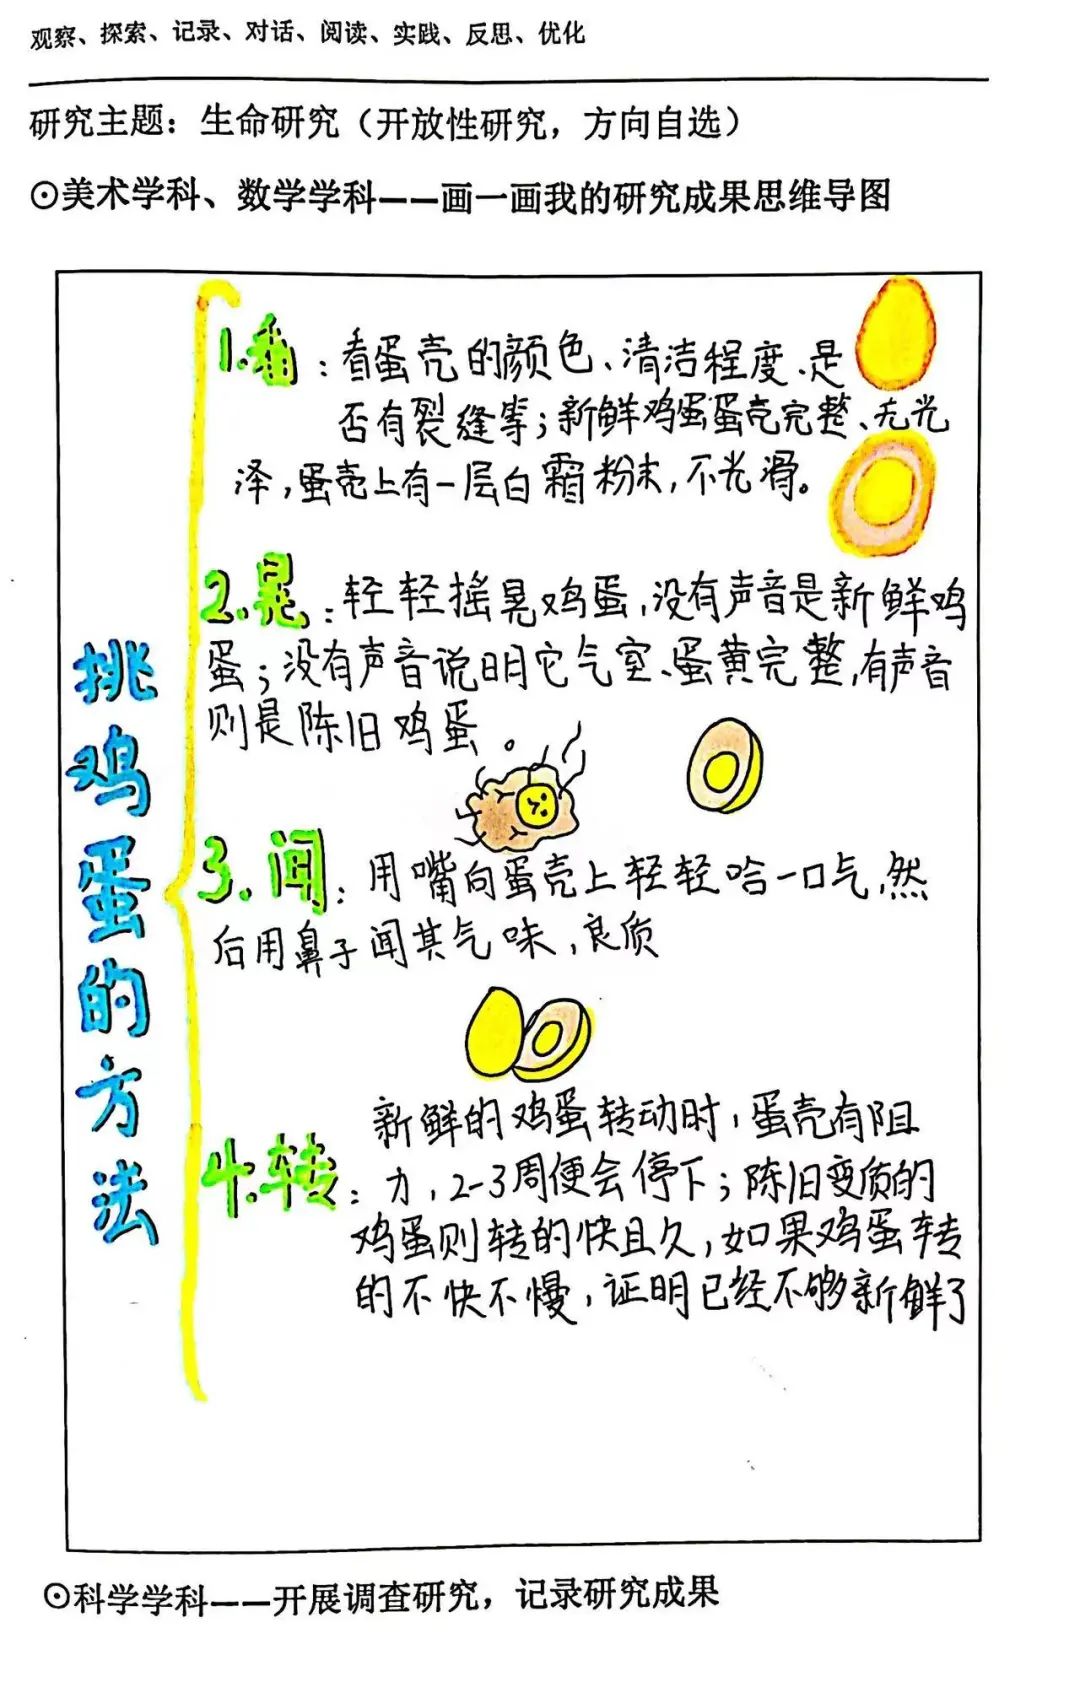 观察、探索、记录、对话、阅读、实践、反思、优化
研究主题：生命研究（开放性研究，方向自选）
⊙美术学科、数学学科——画一画我的研究成果思维导图
挑鸡蛋的方法
1.看：看蛋壳的颜色、清洁程度、是
否有裂缝等；新鲜鸡蛋蛋壳完整、无光
泽，蛋壳上有一层白霜粉末，不光滑。
2.晃：轻轻摇晃鸡蛋，没有声音是新鲜鸡
蛋；没有声音说明它气室、蛋黄完整，有声音
则是陈旧鸡蛋。
3.闻：用嘴向蛋壳上轻轻哈一口气，然
后用鼻子闻其气味，良质
新鲜的鸡蛋转动时，蛋壳有阻
4.转：力，2-3周便会停下；陈旧变质的
鸡蛋则转的快且久，如果鸡蛋转
的不快不慢，证明已经不够新鲜了
⊙科学学科——开展调查研究，记录研究成果